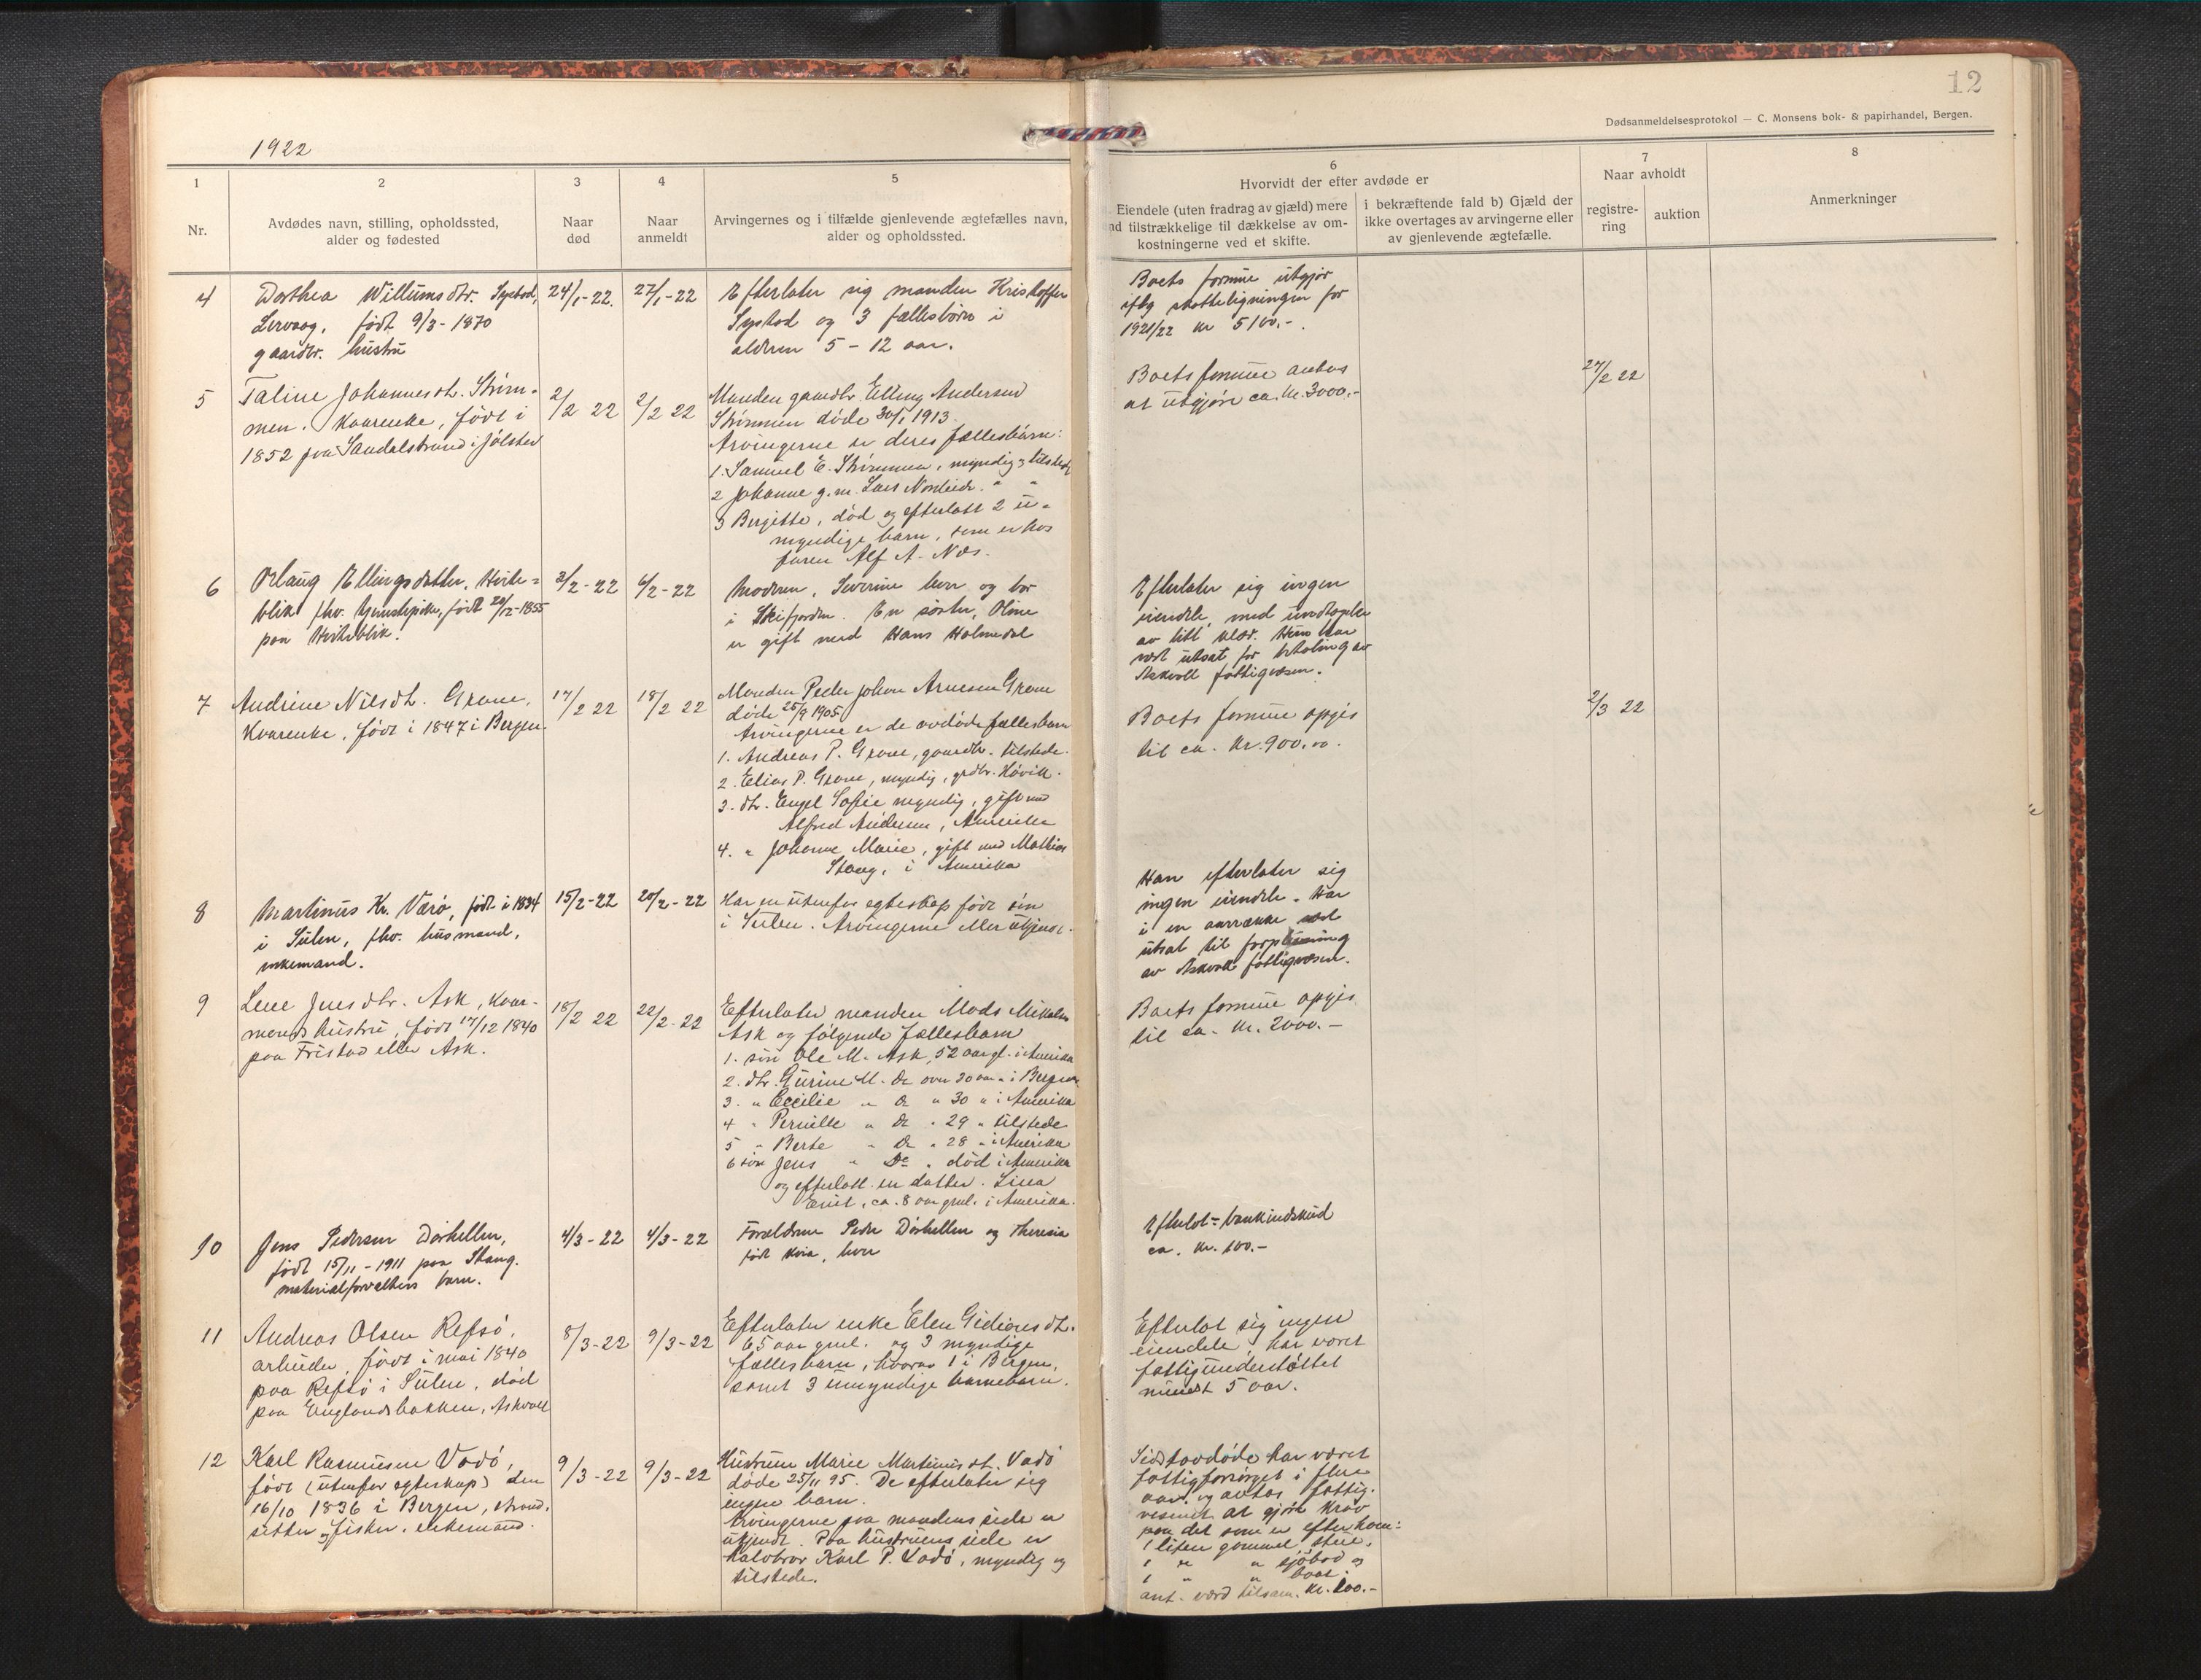 12
Dødsanmeldelsesprotokol — C. Monsens bok- & papirhandel, Bergen.
1922
1
2
3
4
5
6
7
8
Nr.
Avdødes navn, stilling, opholdssted,
alder og fødested
Naar
død
Naar
anmeldt
Arvingernes og i tilfælde gjenlevende ægtefælles navn,
alder og opholdssted.
Hvorvidt der efter avdøde er
Eiendele (uten fradrag av gjæld) mere
nd tilstrækkelige til dækkelse av om-
kostningerne ved et skifte.
i bekræftende fald b) Gjæld der
ikke overtages av arvingerne eller
av gjenlevende ægtefælle.
Naar avholdt
registre-
ring
auktion
Anmerkninger
4
Dorthea Willumsdtr. Systad,
Lervaag, født 9/3-1870
gaardbr. hustru
24/1-22.
27/1-22
Efterlater sig manden Kristoffer
Systad og 3 fællesbørn i
alderen 5 - 12 aar.
Boets formue utgjør
iflg skatteligningen for
1921/22 kr 5100.-.
5
Taline Johannesdt. Strøm-
men. Kvarenke, født i
1852 paa Sandalstrand i Jølster
2/2 22
2/2 22
Manden gaardbr. Elling Andersen
Strømmen døde 30/1 1913.
Arvingerne er deres fællesbarn:
1. Samuel E. Strømmen, myndig og tilstede
2 Johanne g.m. Lars Nordeide. " "
3 Bergitte, død og efterlatt 2 u-
myndige barn, som er hos
faren Alf A. Næs.
Boets formue antas
at utgjøre ca. kr. 3000.-
27/2 22
6
Orlaug Ellingsdatter, Hvite-
blik fhv. tjenestepike, født 29/12-1855
paa Hviteblik.
3/2-22
6/2-22
Moderen, Severine lever og bor
i Skifjorden. En søster, Oline
er gift med Hans Holmedal
Efterlater sig ingen
eiendele, med undtagelse
av litt klær. Hun har
vært utsat for betaling av
Askvoll fattigvæsen.
7
Andrine Nilsdt. Grane,
Kvarenke, født i 1847 i Bergen.
17/2 22
18/2 22
Manden Peder Johan Arnesen Grane
døde 25/9 1905
Arvingerne er de avdøde fællesbarn
1. Andreas P. Grane, gaardbr. tilstede.
2. Elias P. Grane, myndig, grdbr. Høvik.
3. dtr. Engel Sofie myndig, gift med
Alfred Andersen, Amerika
4. " Johanne Marie, gift med Mathias
Stang, i Amerika
Boets formue opgis
til ca. kr. 900.00.
2/3 22
8
Martinus Kr. Værø, født i 1834
i Sulen, fhv. husmand,
enkemand.
15/2-22
20/2-22
Har en utenfor egteskap født søn
i Sulen. Arvingerne eller ukjend.
Han efterlater sig
ingen eiendele. Har
i en aarrække vært
utsat til forpleining
av Askvoll fattigvæsen.
9
Lene Jensdtr. Ask, kvar-
mends hustru, født 17/12 1840
paa Fristad eller Ask.
18/2 22
22/2-22
Efterlater manden Mads Mikalsen
Ask og følgende fællesbarn
1. søn Ole M. Ask, 52 aar gl. i Amerika
2. dtr. Gurine M. do over 30 aar " i Bergen
3. " Cecilie " do " 30 " i Amerika
4 " Pernille " do " 29 " tilstede
5 " Berte " do " 28 " i Amerika
6 søn Jens " do " død i Amerika
og efterlatt en datter. Lina
Enit, ca. 8 aar gml. i Amerika.
Boets formue opgis
til ca. kr. 2000.-
10
Jens Pedersen Dørhellen,
født 15/11-1911 paa Stang.
materialforvalters barn.
4/3-22
4/3-22
Forældrene Peder Dørhellen og Theresia
født Kvia, lever
Efterlot- bankindskud
ca. kr. 100.-
11
Andreas Olsen Refsø,
arbeider, født i mai 1840
paa Refsø i Sulen, død
paa Englandsbakken, Askvoll
8/3-22
9/3-22
Efterlater enke Elen Gidionsdt.
65 aar gml. og 3 myndige
fællesbarn, hvorav 1 i Bergen,
samt 3 umyndige barnebarn.
Efterlot sig ingen
eiendele, har været
fattigunderstøttet
mindst 5 aar.
12
Karl Rasmussen Vadø,
født (utenfor egteskap) den
16/10 1836 i Bergen, strand-
sitter og fisker, enkemand.
9/3-22
9/3-22
Hustruen Marie Martinusdt. Vadø
døde 25/11 95. De efterlater sig
ingen barn.
Arvingerne paa mandens side er
ukjendt. Paa hustruens side er
halvbror Karl P. Vadø, myndig og
tilstede.
Sidstavdøde har været
fattigforsørget i flere
aar, og antas fattig-
vesenet at gjøre krav
paa det som er efter ham:
1 liten gammel stue,
1 do " sjøbod og
1 " " baat.
ant. værd tilsam. kr. 200.-